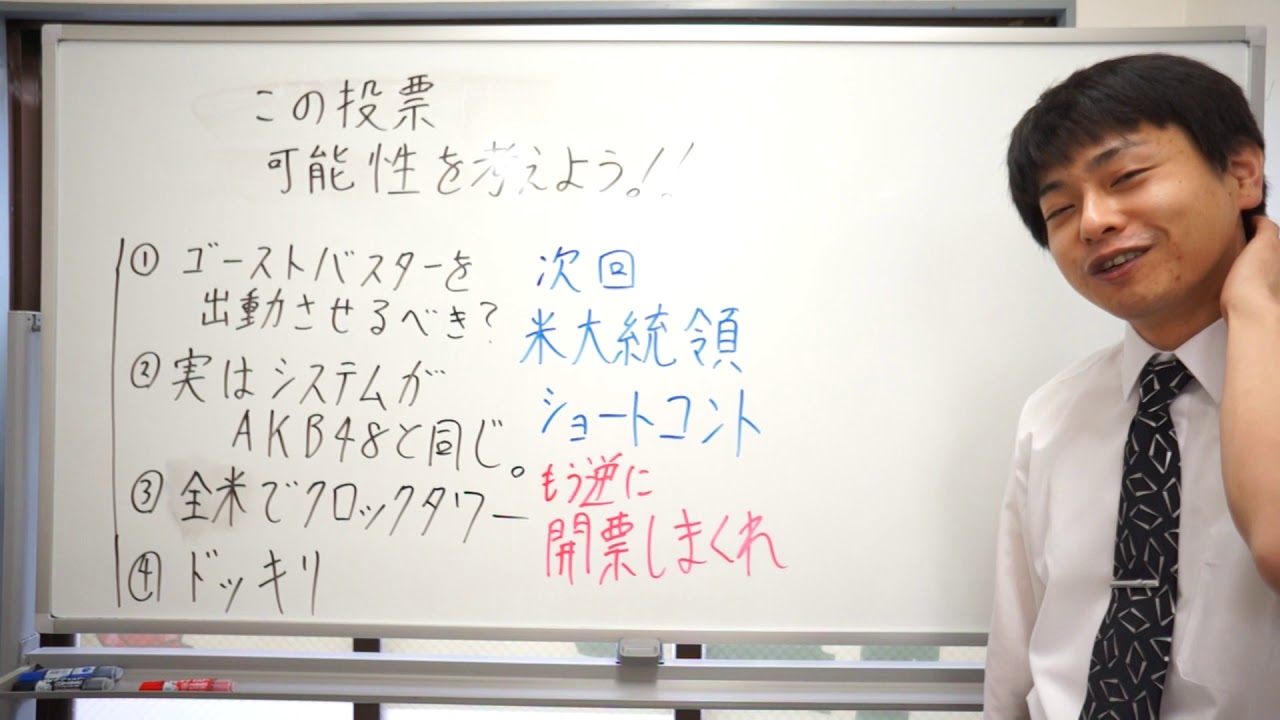 この投票
可能性を考えよう。!!
① ゴーストバスターを
出動させるべき?
② 実はシステムが
AKB48と同じ。
③ 全米でクロックタワー
④ ドッキリ
次回
米大統領
ショートコント
もう逆に
開票しまくれ